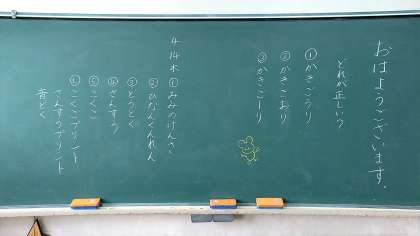 おはようございます。
どれが正しい?
①かきごうり
②かきごおり
③かきごーり
4/14木①みみのけんさ
②ひなんくんれん
③とうとく
④さんすう
⑤こくご
⑥こくごプリント
さんすうプリント
音どく